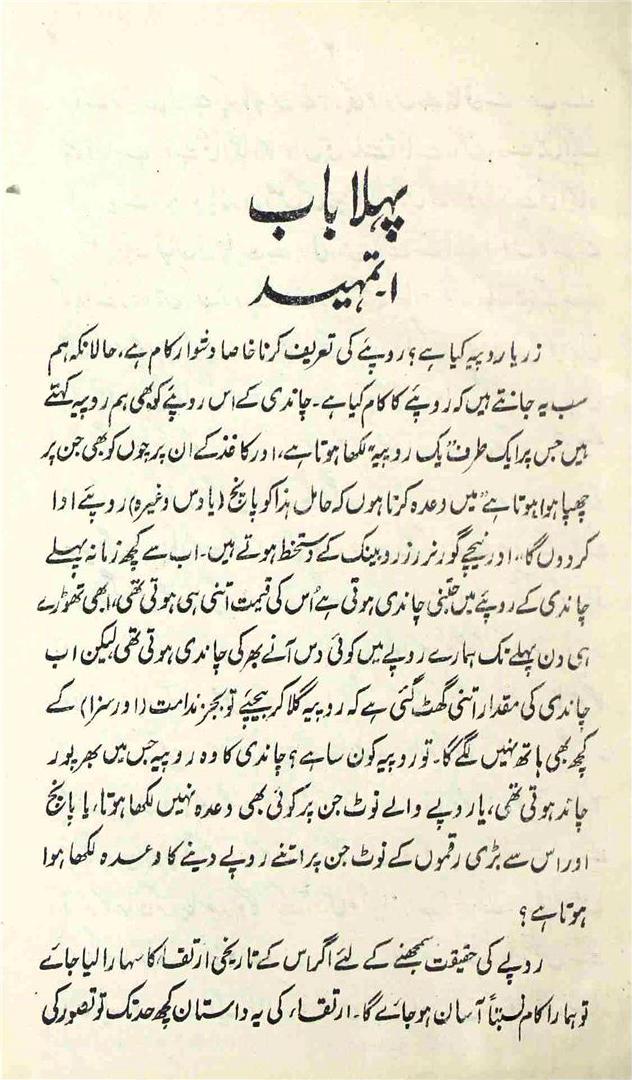 پہلا باب
۱۔ تمہید
زر یا روپیہ کیا ہے؟ روپئے کی تعریف کرنا خاصا دشوار کام ہے، حالانکہ ہم
سب یہ جانتے ہیں کہ روپئے کا کام کیا ہے۔ چاندی کے اس روپئے کو بھی ہم روپیہ کہتے
ہیں جس پر ایک طرف "یک روپیہ" لکھا ہوتا ہے، اور کاغذ کے ان پرچوں کو بھی جن پر
چھپا ہوا ہوتا ہے "میں وعدہ کرتا ہوں کہ حامل ہذا کو پانچ (یا دس وغیرہ) روپئے ادا
کردوں گا"، اور نیچے گورنر رزرو بینک کے دستخط ہوتے ہیں۔ اب سے کچھ زمانہ پہلے
چاندی کے روپئے میں جتنی چاندی ہوتی ہے اُس کی قیمت اتنی ہی ہوتی تھی، ابھی تھوڑے
ہی دن پہلے تک ہمارے روپے میں کوئی دس آنے بھر کی چاندی ہوتی تھی، لیکن اب
چاندی کی مقدار اتنی گھٹ گئی ہے کہ روپیہ گلا کر بیچئے تو بجز ندامت (اور سزا) کے
کچھ بھی ہاتھ نہیں لگے گا۔ تو روپیہ کون سا ہے؟ چاندی کا وہ روپیہ جس میں بھرپور
چاند ہوتی تھی، یا روپے والے نوٹ جن پر کوئی بھی وعدہ نہیں لکھا ہوتا، یا پانچ
اور اس سے بڑی رقموں کے نوٹ جن پر اتنے روپے دینے کا وعدہ لکھا ہوا
ہوتا ہے؟
روپے کی حقیقت سمجھنے کے لئے اگر اس کے تاریخی ارتقاء کا سہارا لیا جائے
تو ہمارا کام نسبتاً آسان ہو جائے گا۔ ارتقاء کی یہ داستان کچھ حد تک تو تصور کی